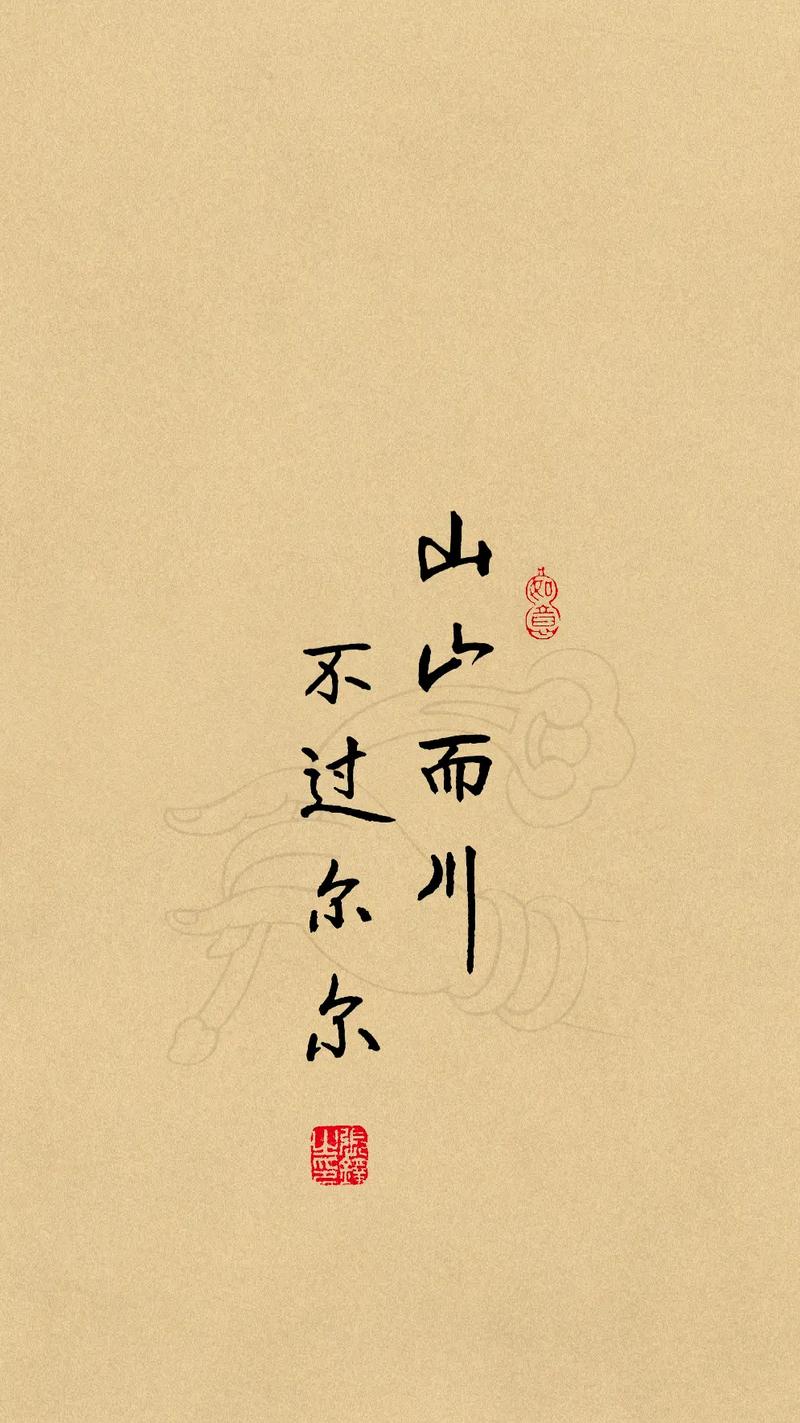 如意
山山而川
不过尔尔